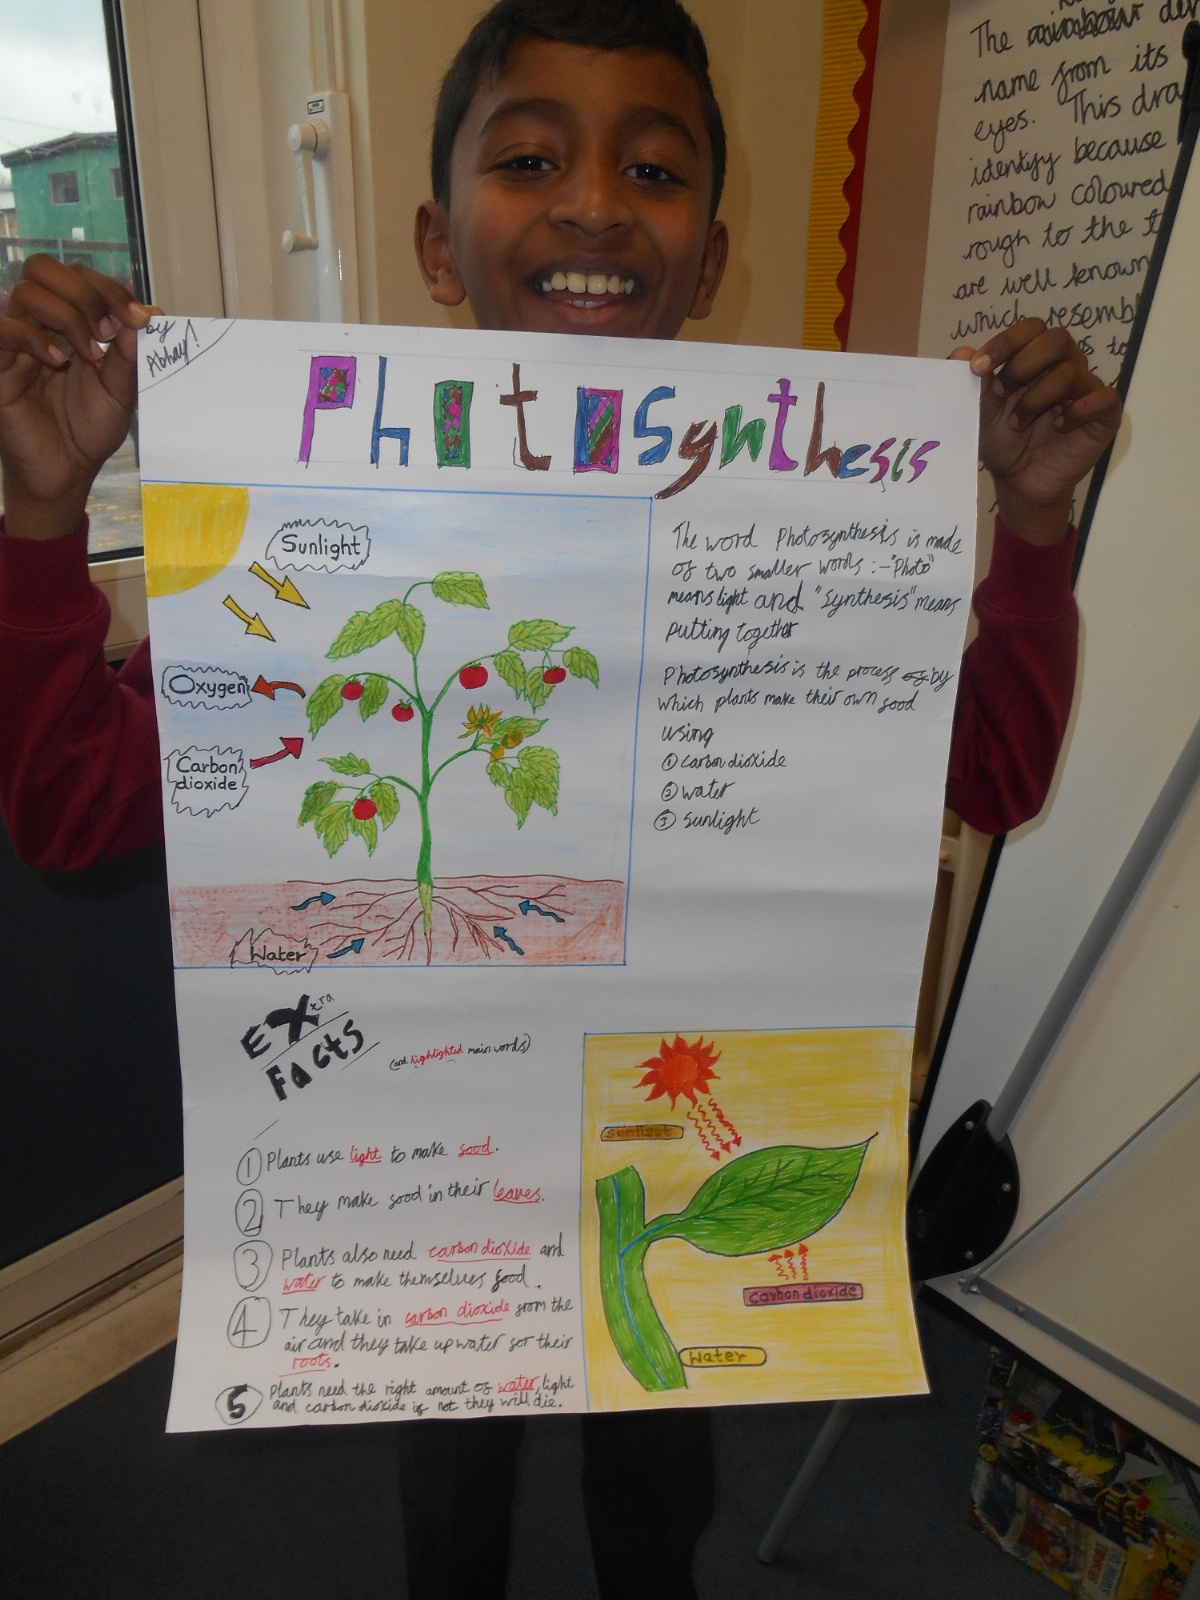 by
Abhay!
Photosynthesis
Sunlight
Oxygen
Carbon
dioxide
Water
The word Photosynthesis is made
of two smaller words :- "Photo"
means light and "Synthesis" means
putting together
Photosynthesis is the process of by
which plants make their own food
using
① carbon dioxide
② water
③ sunlight
Extra
Facts
(and highlighted main words)
1 Plants use light to make food.
2 They make food in their leaves.
3 Plants also need carbon dioxide and
water to make themselves food.
4 They take in carbon dioxide from the
air and they take up water for their
roots.
5 Plants need the right amount of water, light
and carbon dioxide if not they will die.
sunligt
carbon dioxide
water
The rainbow
name from its
eyes. This
identify because
rainbow coloured
rough to the
are well known
which